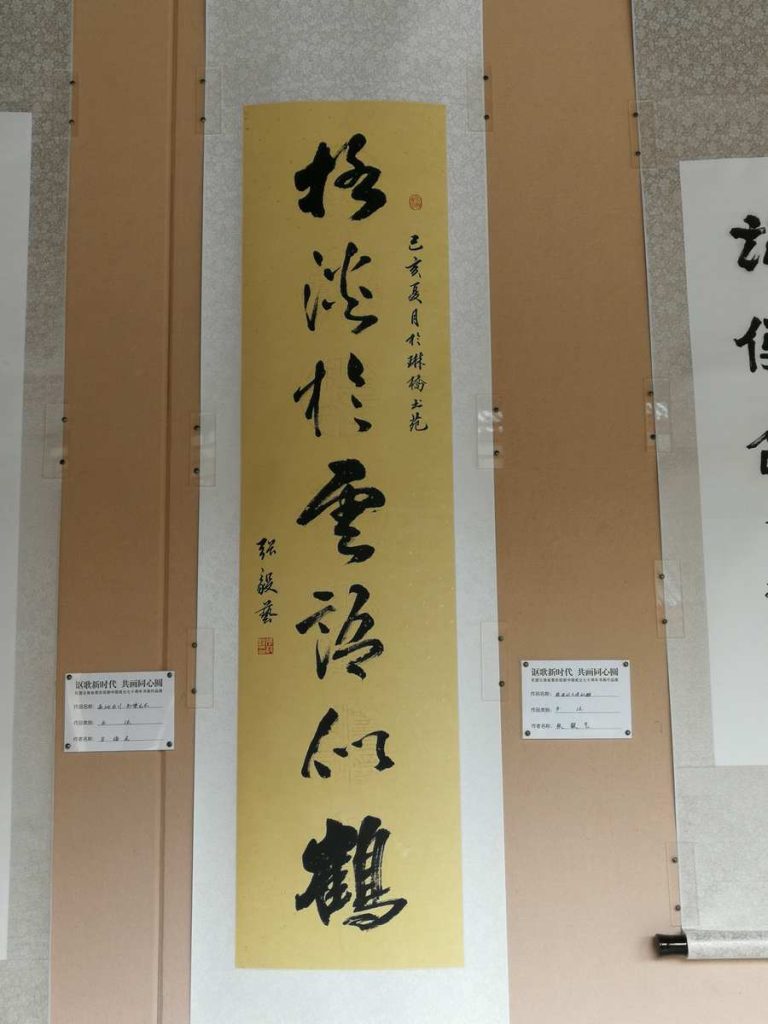 格淡於雲語似鶴
己亥夏月於琳橋書苑
張毅藝
讴歌新时代 共画同心圆
作品名称:
作品类别: 书法
作者名称:
讴歌新时代 共画同心圆
作品名称:
作品类别: 书法
作者名称: 张毅艺